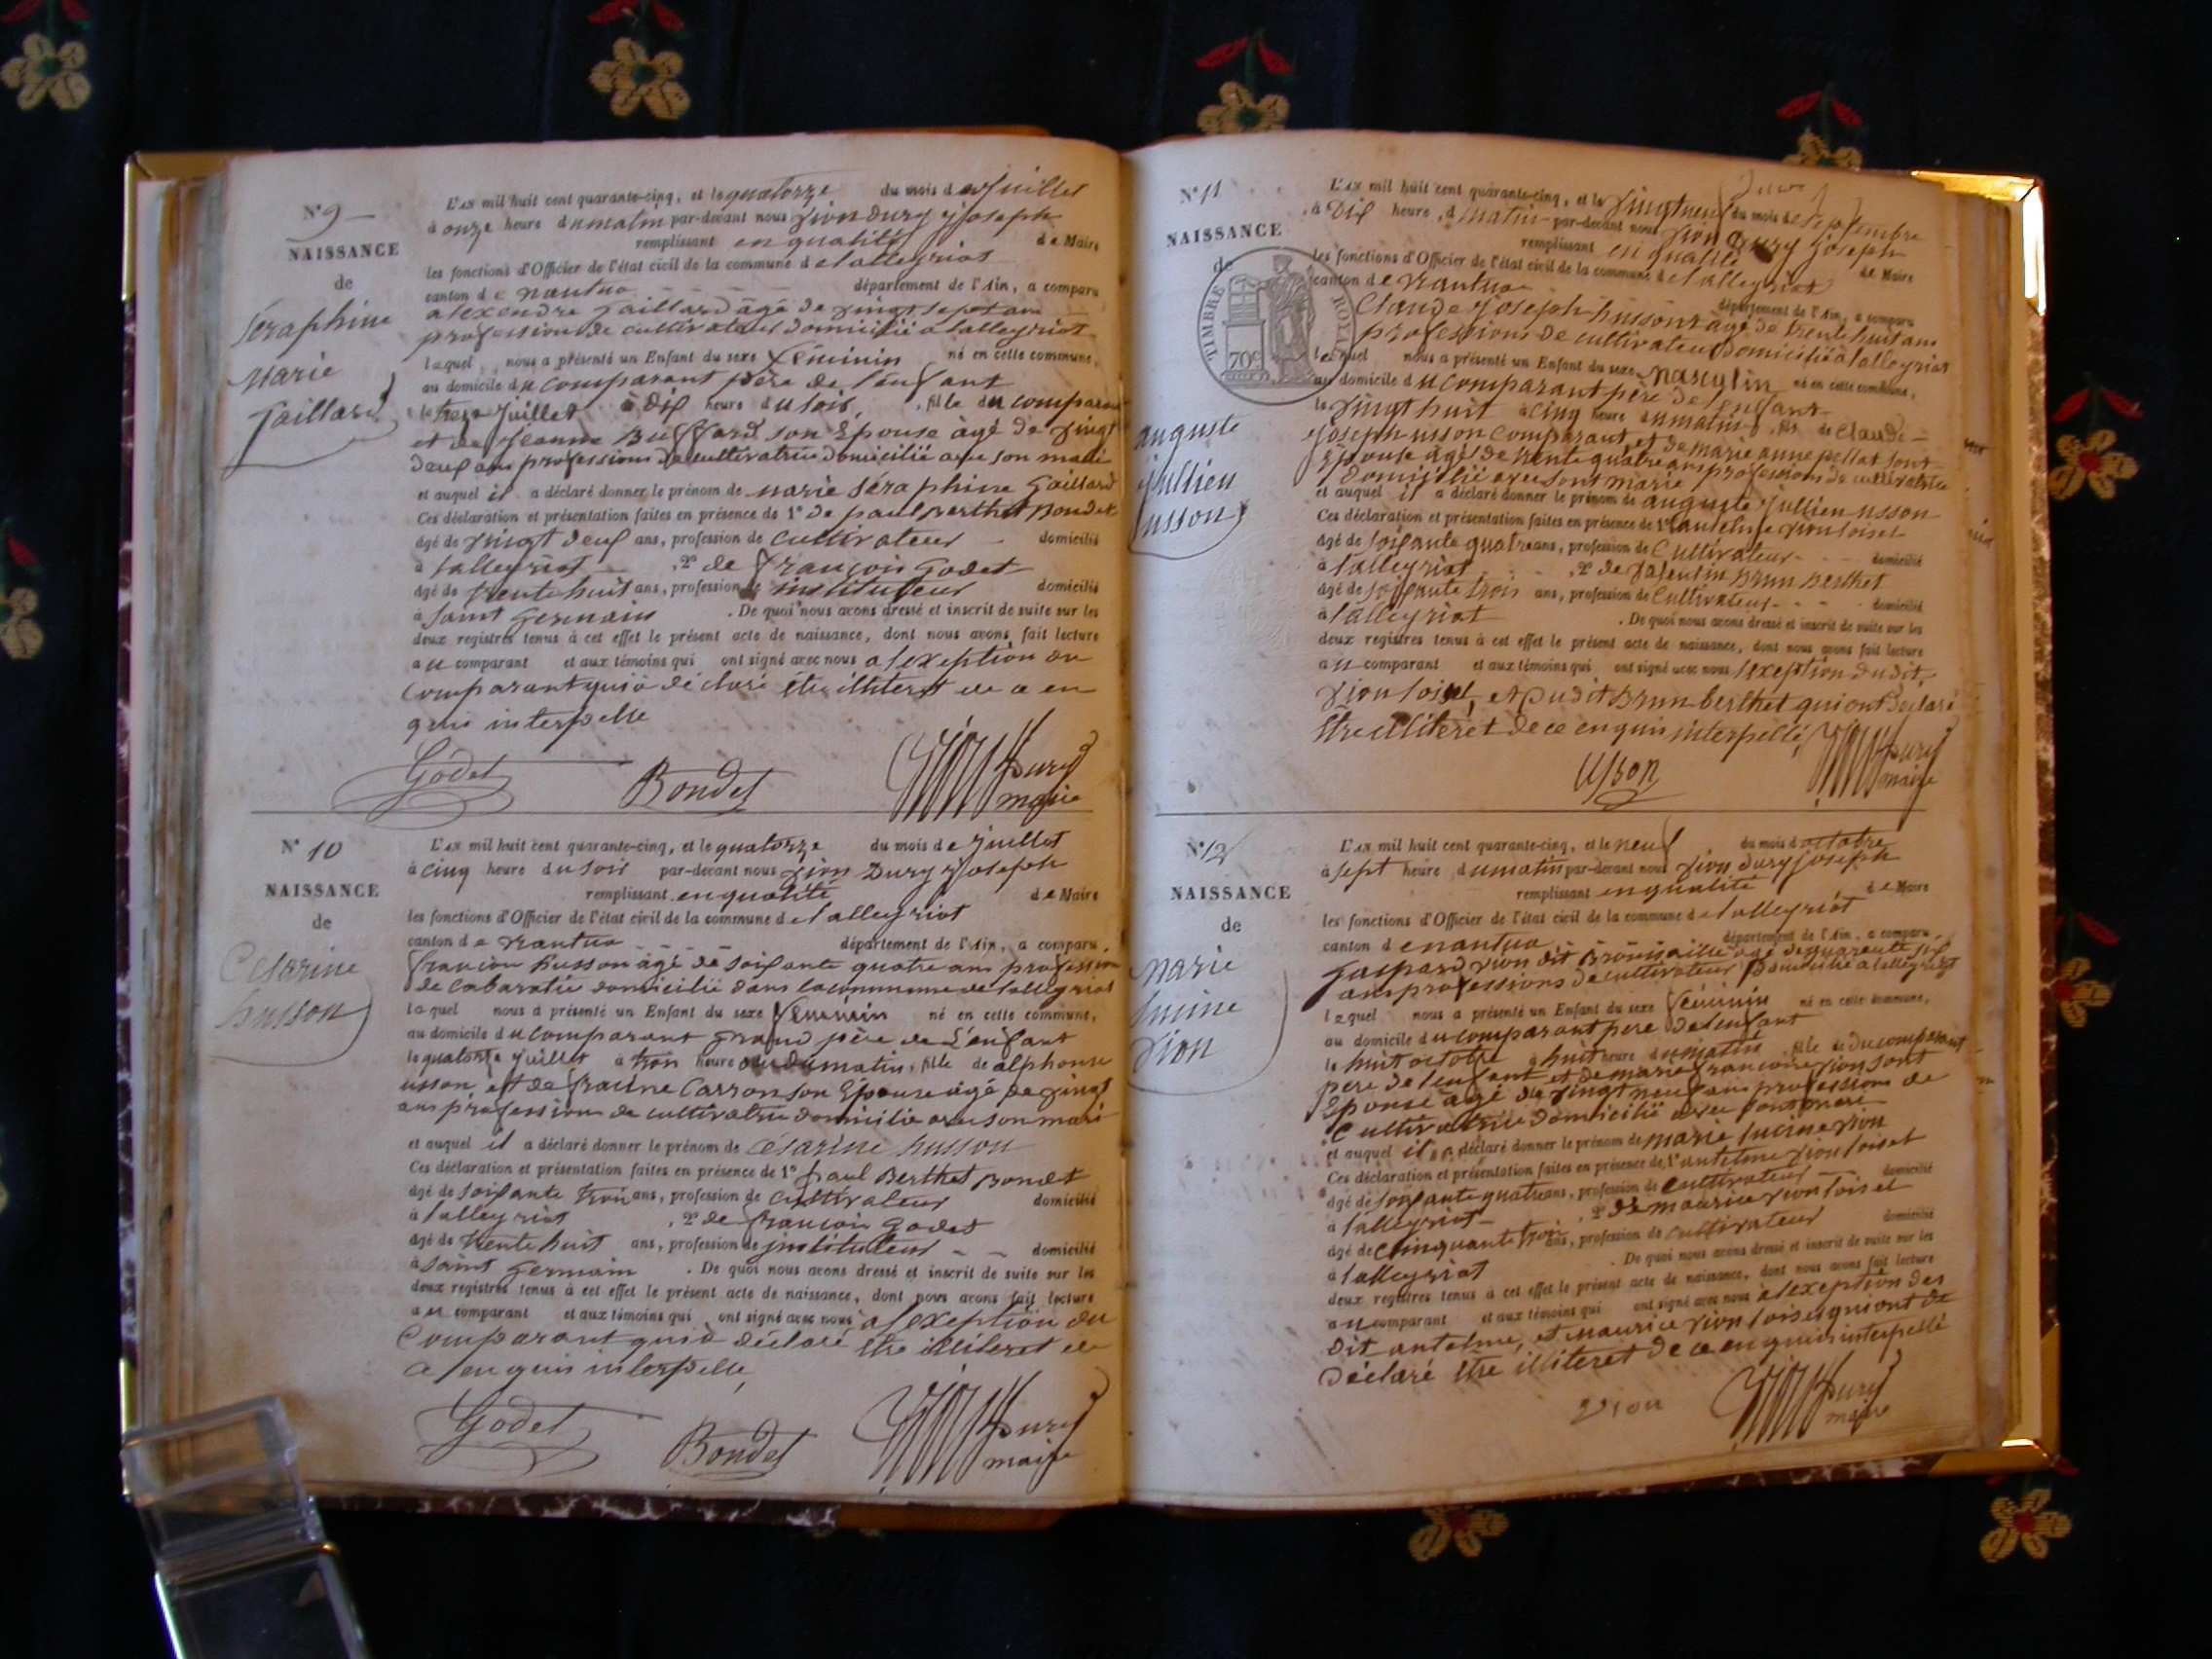 N° 9
NAISSANCE
de
Séraphine
Marie
Gaillard
L'AN mil huit cent quarante-cinq, et le quatorze du mois de Juillet
à onze heure du matin par-devant nous Vion Dury Joseph
remplissant en qualité de Maire
les fonctions d'Officier de l'état civil de la commune de lalleyriat
canton de nantua département de l'Ain, a comparu
alexendre Gaillard âgé de vingt sept ans
profession de cultivateur domicilié a lalleyriat
lequel nous a présenté un Enfant du sexe féminin né en cette commune,
au domicile du comparant père de l'enfant
le treze Juillet à dix heure du soir, fille du comparant
et de Jeanne Buffard son Epouse agé de vingt
deux ans profession de cultivatrice domicilié avec son mari
et auquel il a déclaré donner le prénom de marie séraphine Gaillard
Ces déclaration et présentation faites en présence de 1° de paul Berthet Bondet
âgé de vingt deux ans, profession de cultivateur domicilié
à lalleyriat, 2° de françois Godet
âgé de trente huit ans, profession de instituteur domicilié
à saint germain. De quoi nous avons dressé et inscrit de suite sur les
deux registres tenus à cet effet le présent acte de naissance, dont nous avons fait lecture
au comparant et aux témoins qui ont signé avec nous a lexeption du
comparant qui à déclaré être illiteret de ce en
quis interpelle
Godet Bondet Vion Dury
maire
N° 10
NAISSANCE
de
Césarine
husson
L'AN mil huit cent quarante-cinq, et le quatorze du mois de Juillet
à cinq heure du soir par-devant nous Vion Dury Joseph
remplissant en qualité de Maire
les fonctions d'Officier de l'état civil de la commune de lalleyriat
canton de nantua département de l'Ain, a comparu
françois husson âgé de soixante quatre ans profession
de cabaratié domicilié dans la commune de lalleyriat
lequel nous a présenté un Enfant du sexe féminin né en cette commune,
au domicile du comparant grand père de L'enfant
le quatorze Juillet à trois heure du matin, fille de alphonse
usson et de Carron son Epouse âgé de vingt
ans profession de cultivatrice domicilié avec son mari
et auquel il a déclaré donner le prénom de Césarine husson
Ces déclaration et présentation faites en présence de 1° paul Berthet Bondet
âgé de soixante trois ans, profession de cultivateur domicilié
à lalleyriat, 2° de françois Godet
âgé de trente huit ans, profession de instituteur domicilié
à saint germain. De quoi nous avons dressé et inscrit de suite sur les
deux registres tenus à cet effet le présent acte de naissance, dont nous avons fait lecture
au comparant et aux témoins qui ont signé avec nous a lexeption du
comparant qui à déclaré être illiteret de
ce en quis interpelle,
Godet Bondet Vion Dury
maire
N° 11
NAISSANCE
de
TIMBRE ROYAL
70c
auguste
Jullien
usson
L'AN mil huit cent quarante-cinq, et le vingt neuf du mois de septembre
à dix heure du matin par-devant nous Vion Dury Joseph
remplissant en qualité de Maire
les fonctions d'Officier de l'état civil de la commune de lalleyriat
canton de nantua département de l'Ain, a comparu
Claude Joseph husson âgé de trente huit ans
professions de cultivateur domicilié à lalleyriat
lequel nous a présenté un Enfant du sexe masculin né en cette commune,
au domicile du comparant père de l'enfant
le vingt huit à cinq heure du matin, fils de Claude
Joseph usson comparant et de marie anne pellat sont
Epouse âgés de trente quatre ans professions de cultivatrice
domicilié avec sont marie
et auquel il a déclaré donner le prénom de auguste Jullien usson
Ces déclaration et présentation faites en présence de 1° antelme vion loiset
âgé de soixante quatre ans, profession de Cultivateur domicilié
à lalleyriat, 2° de valentin Brun Berthet
âgé de soixante trois ans, profession de Cultivateur domicilié
à lalleyriat. De quoi nous avons dressé et inscrit de suite sur les
deux registres tenus à cet effet le présent acte de naissance, dont nous avons fait lecture
au comparant et aux témoins qui ont signé avec nous lexeption du dit
vion loiset, et du dit Brun berthet qui ont déclaré
être illiteret de ce en quis interpellé,
Usson Vion Dury
maire
N° 12
NAISSANCE
de
Marie
lucine
vion
L'AN mil huit cent quarante-cinq, et le neuf du mois d octobre
à sept heure du matin par-devant nous Vion Dury Joseph
remplissant en qualité de Maire
les fonctions d'Officier de l'état civil de la commune de lalleyriat
canton de nantua département de l'Ain, a comparu
Gaspard vion dit agé de quarante six
ans professions de cultivateur domicilié a lalleyriat
lequel nous a présenté un Enfant du sexe féminin né en cette commune,
au domicile du comparant pere de lenfant
le huit octobre à huit heure du matin, fille de du comparant
pere de lenfant et de marie francoise vion sont
Epouse agé de vingt neuf ans professions de
Cultivatrice domicilié avec sont mari
et auquel il a déclaré donner le prénom de marie lucine vion
Ces déclaration et présentation faites en présence de 1° antelme vion loiset
âgé de soixante quatre ans, profession de Cultivateur domicilié
à lalleyriat, 2° de maurice vion loiset
âgé de cinquante trois ans, profession de cultivateur domicilié
à lalleyriat. De quoi nous avons dressé et inscrit de suite sur les
deux registres tenus à cet effet le présent acte de naissance, dont nous avons fait lecture
au comparant et aux témoins qui ont signé avec nous a lexeption des
dit antelme, et maurice vion loiset qui ont de
déclaré être illiteret de ce en quis interpellé
Vion Vion Dury
maire